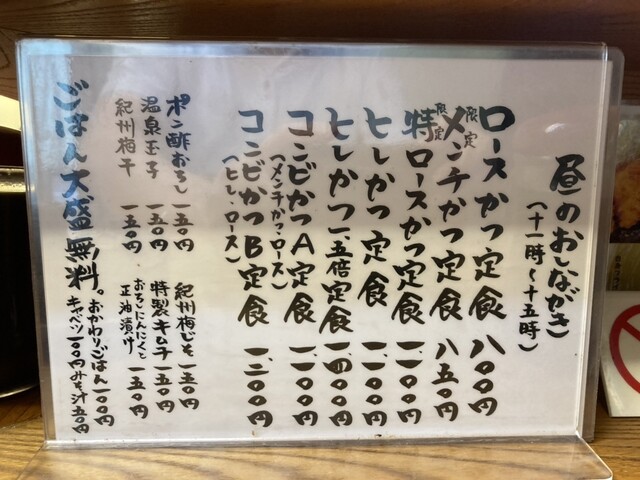 昼のおしながき
(十一時～十五時)
ロースかつ定食 八〇〇円
限定 メンチかつ定食 八五〇円
限定 特ロースかつ定食 一、一〇〇円
ヒレかつ定食 一、一〇〇円
ヒレかつ一、五倍定食 一、四〇〇円
コンビかつA定食 一、一〇〇円
(メンチかつ・ロース)
コンビかつB定食 一、二〇〇円
(ヒレ・ロース)
ポン酢おろし 一五〇円
温泉玉子 一五〇円
紀州梅干 一五〇円
紀州梅じそ 一五〇円
特製キムチ 一五〇円
おろしにんにくと
正油漬け 一五〇円
ごはん大盛無料。おかわりごはん一〇〇円
キャベツ一〇〇円みそ汁五〇円